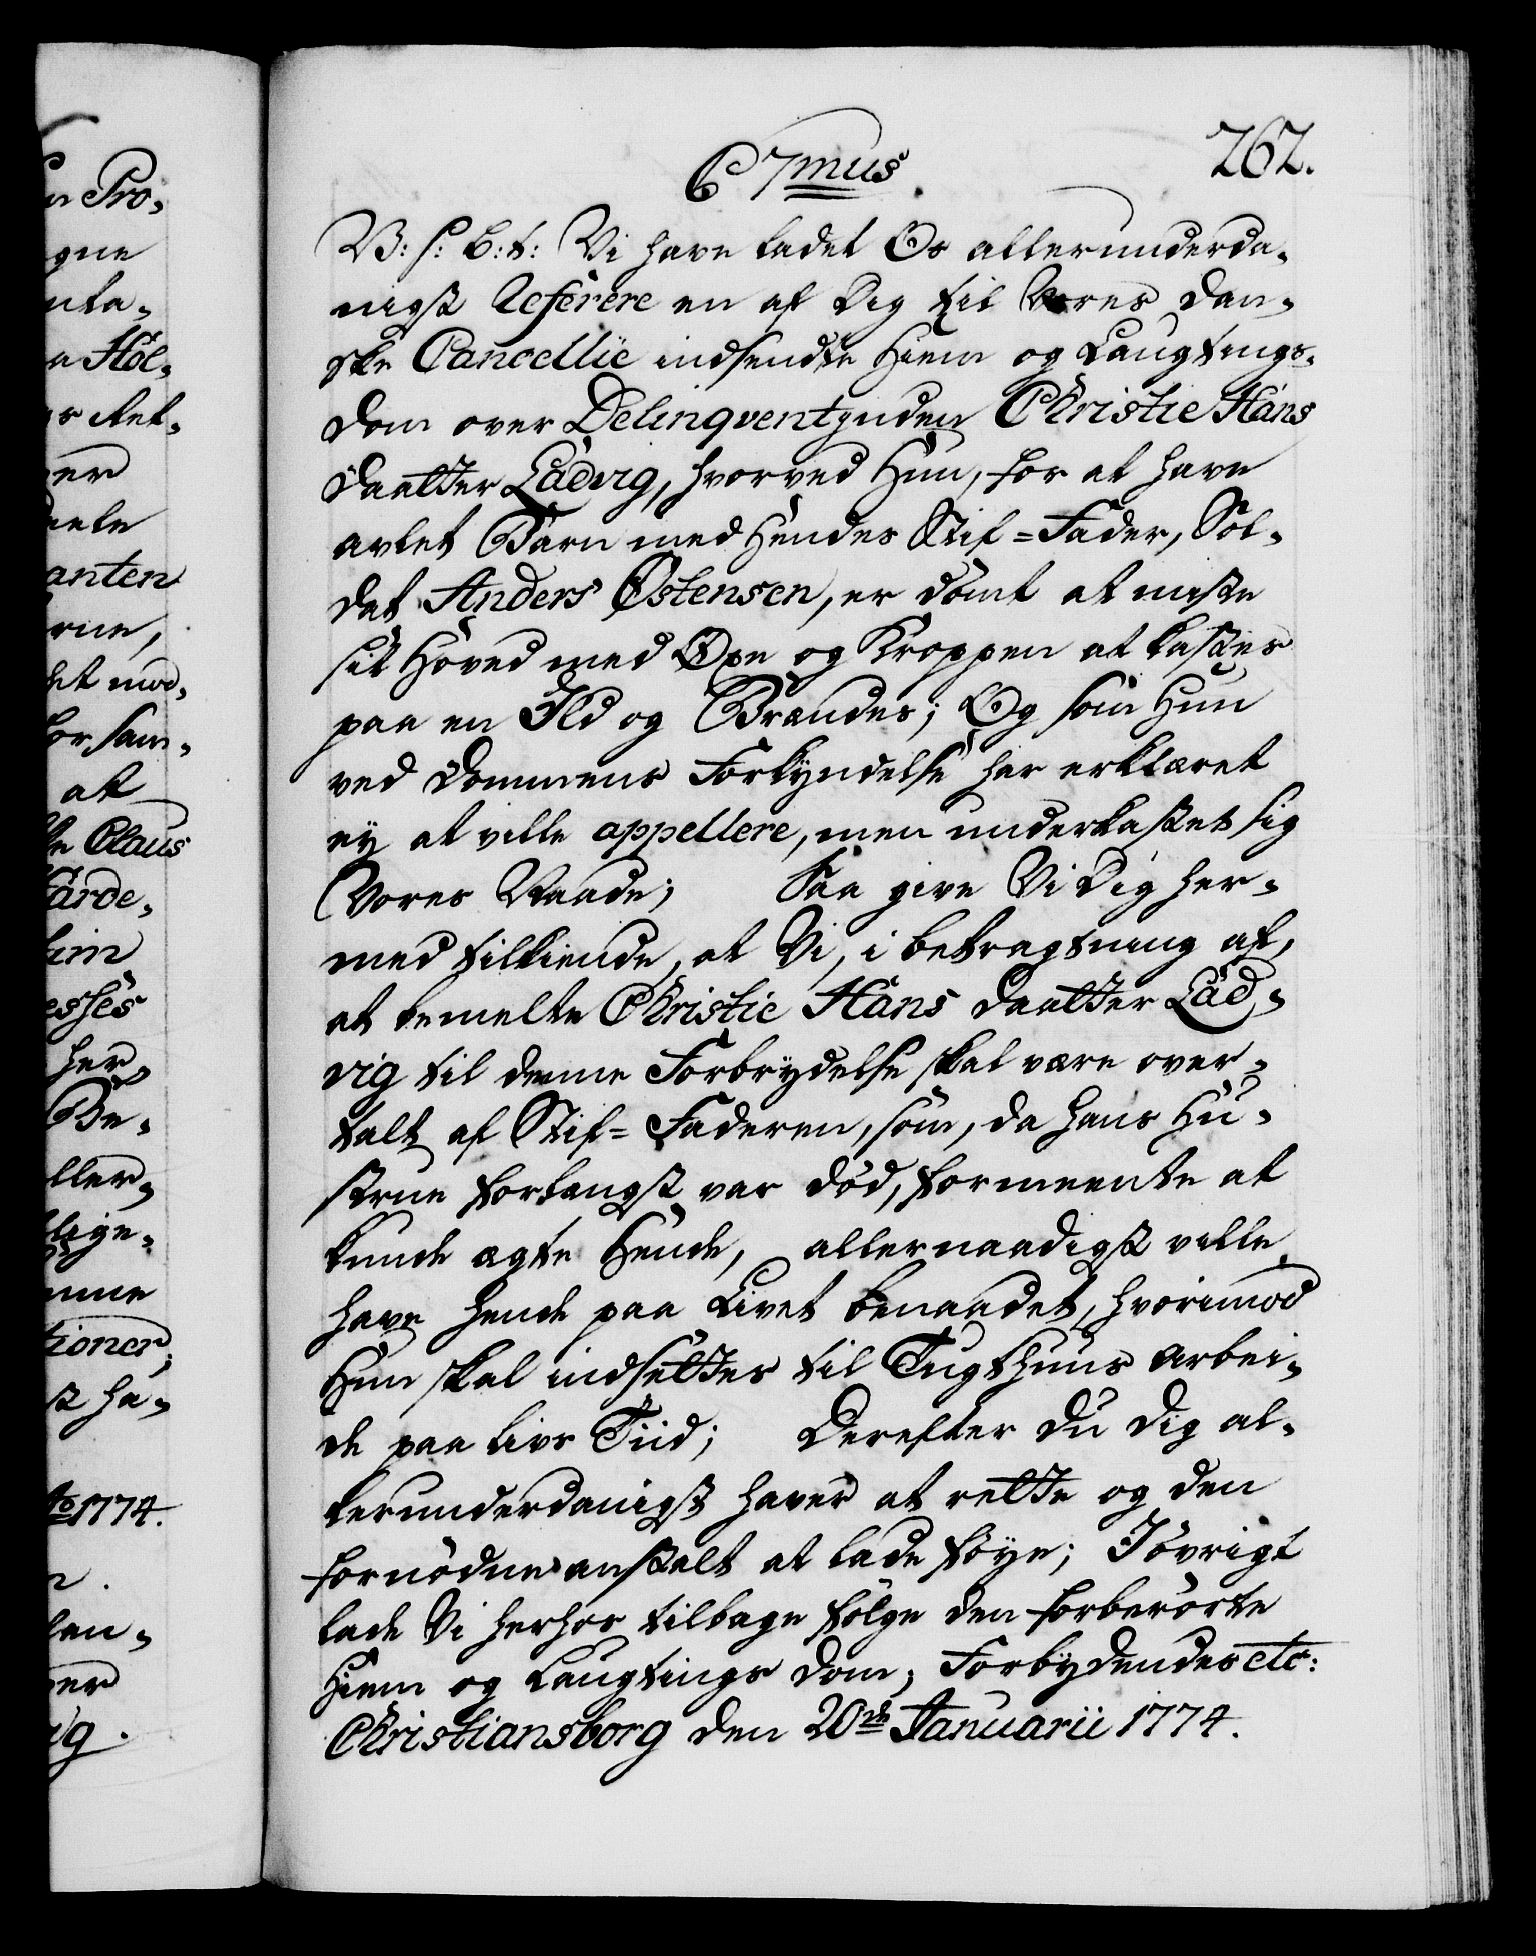 n Pro-
gne
nta-
a Hol-
er
anten
rne,
et mod-
for sam-
at
te Claus
esses
her
Be-
ller-
nme
tioner,
st ha-
to 1774.
er
262.
C 7mus
V: S: B: t: Vi have ladet Os allerunderda-
nigst Referere en af Dig til Vores Dan-
ske Cancellie indsendte Hiem og Laugtings-
Dom over Delinqventinden Christie Hans
Daatter Ladvig, hvorved Hun, for at have
avlet Barn med Hendes Stif=Fader, Sol-
dat Anders Østensen, er dömt at miste
sit Hoved med Øxe og Kroppen at kastes
paa en Ild og Brændes; Og som Hun
ved Dommens Forkyndelse har erklæret
ey at ville appellere, men underkastet sig
Vores Naade; Saa give Vi Dig her-
med tilkiende, at Vi, i betragtning af,
at bemelte Christie Hans Daatter Lad-
vig til denne Forbrydelse skal være over-
talt af Stif=Faderen, som, da hans Hu-
strue forlængst var död, formeente at
kunde ægte Hende, allernaadigst ville
have hende paa Livet benaadet, hvorimod
Hun skal indsettes til Tugthuus arbei-
de paa livs Tiid; Derefter Du Dig al-
lerunderdanigst haver at rette og den
fornödne anstalt at lade föye; Iövrigt
lade Vi herhos tilbage fölge den forberörte
Hiem og Laugtings Dom; Forbydendes etc:
Christiansborg den 20de Januarii 1774.